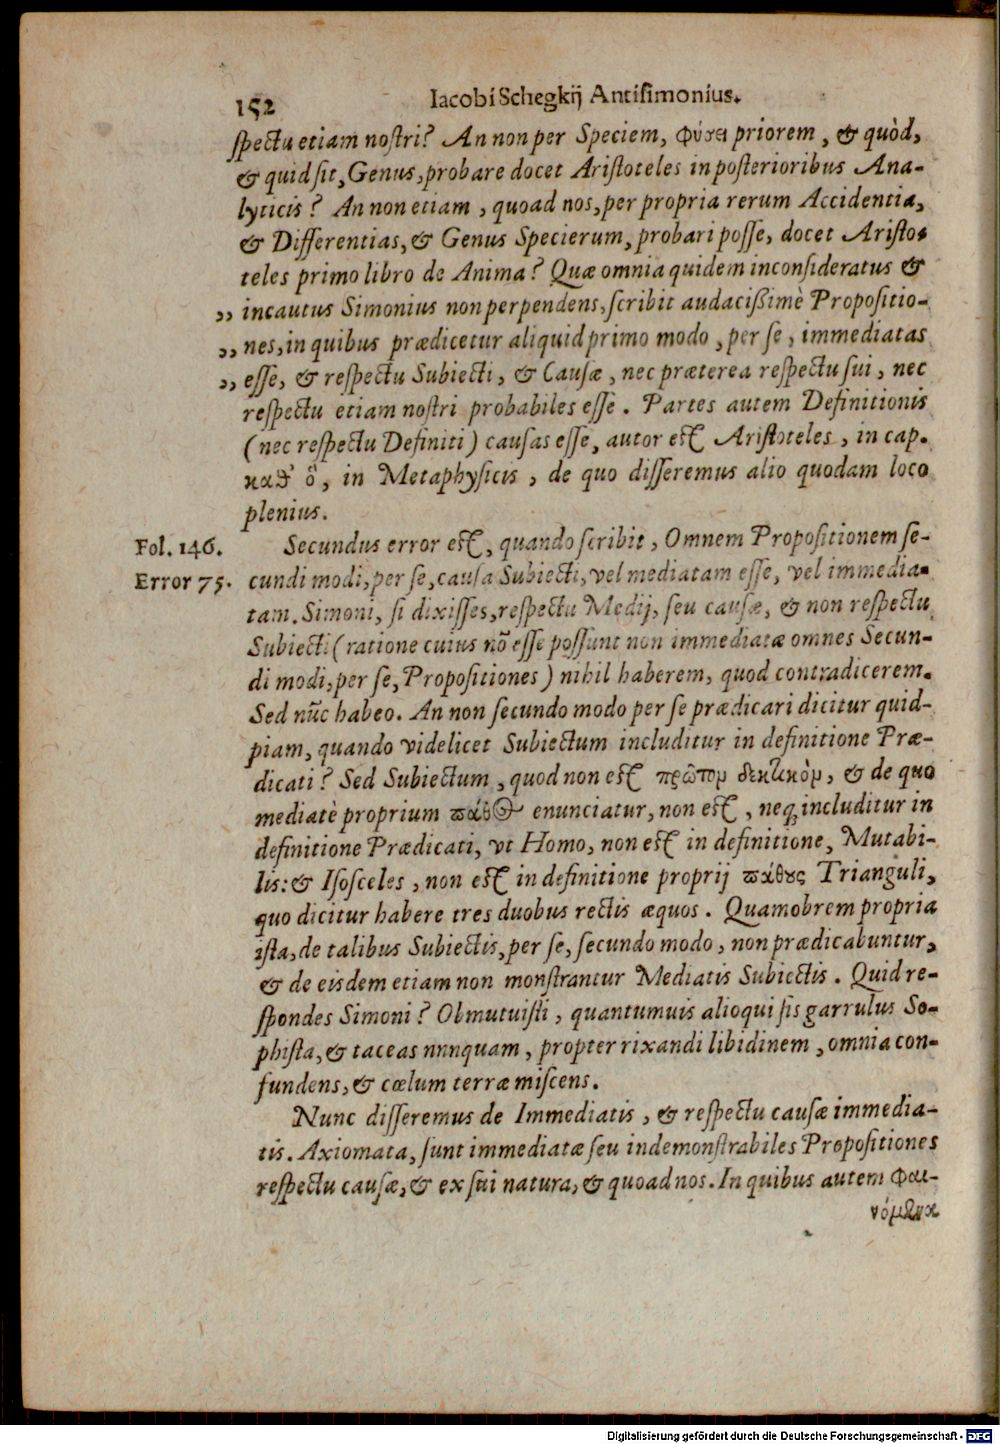 152 Iacobi Schegkij Antisimonius.
spectu etiam nostri? An non per Speciem, φύσει priorem, & quòd,
& quid sit, Genus, probare docet Aristoteles in posterioribus Ana-
lyticis? An non etiam, quoad nos, per propria rerum Accidentia,
& Differentias, & Genus Specierum, probari posse, docet Aristo-
teles primo libro de Anima? Quæ omnia quidem inconsideratus &
„ incautus Simonius non perpendens, scribit audacißimè Propositio-
„ nes, in quibus prædicetur aliquid primo modo, per se, immediatas
„ esse, & respectu Subiecti, & Causæ, nec præterea respectu sui, nec
respectu etiam nostri probabiles esse. Partes autem Definitionis
(nec respectu Definiti) causas esse, autor est Aristoteles, in cap.
καθ' ὅ, in Metaphysicis, de quo disseremus alio quodam loco
plenius.
Fol. 146. Secundus error est, quando scribit, Omnem Propositionem se-
Error 75. cundi modi, per se, causa Subiecti, vel mediatam esse, vel immedia-
tam. Simoni, si dixisses, respectu Medij, seu causæ, & non respectu
Subiecti (ratione cuius nõ esse possunt non immediatæ omnes Secun-
di modi, per se, Propositiones) nihil haberem, quod contradicerem.
Sed nũc habeo. An non secundo modo per se prædicari dicitur quid-
piam, quando videlicet Subiectum includitur in definitione Præ-
dicati? Sed Subiectum, quod non est πρῶτον δεκτικὸν, & de quo
mediatè proprium πάθος enunciatur, non est, neq; includitur in
definitione Prædicati, vt Homo, non est in definitione, Mutabi-
lis: & Isosceles, non est in definitione proprij πάθους Trianguli,
quo dicitur habere tres duobus rectis æquos. Quamobrem propria
ista, de talibus Subiectis, per se, secundo modo, non prædicabuntur,
& de eisdem etiam non monstrantur Mediatis Subiectis. Quid re-
spondes Simoni? Obmutuisti, quantumuis alioqui sis garrulus So-
phista, & taceas nunquam, propter rixandi libidinem, omnia con-
fundens, & cœlum terræ miscens.
Nunc disseremus de Immediatis, & respectu causæ immedia-
tis. Axiomata, sunt immediatæ seu indemonstrabiles Propositiones
respectu causæ, & ex sui natura, & quoad nos. In quibus autem φαι-
νόμενα
Digitalisierung gefördert durch die Deutsche Forschungsgemeinschaft - DFG